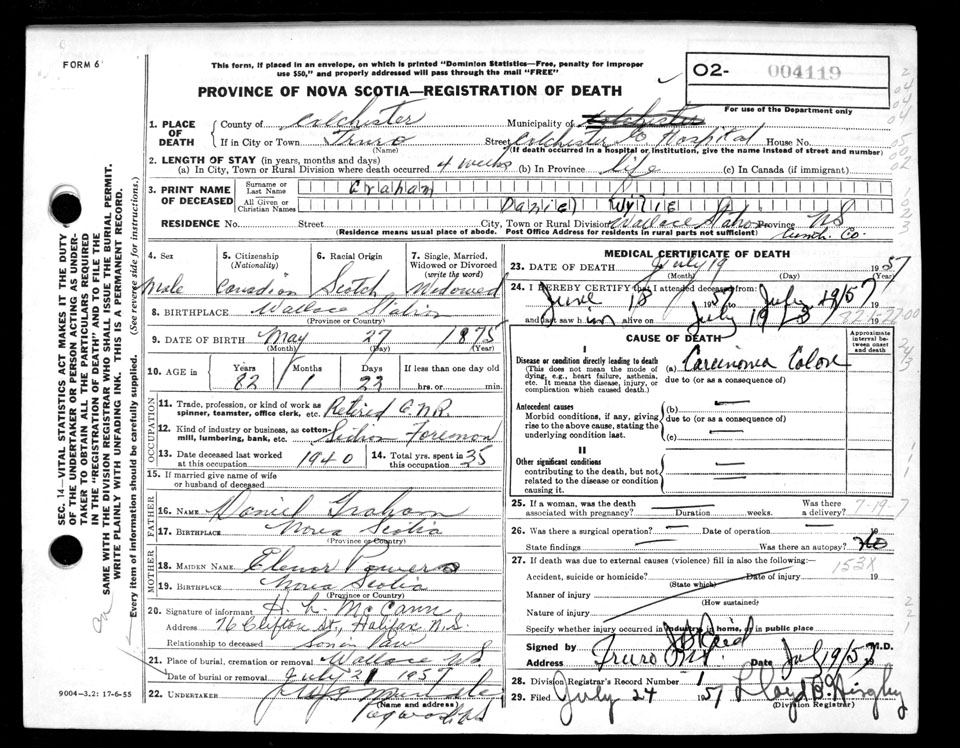 FORM 6
This form, if placed in an envelope, on which is printed "Dominion Statistics—Free, penalty for improper
use $50," and properly addressed will pass through the mail "FREE"
O2- 004119
For use of the Department only
PROVINCE OF NOVA SCOTIA—REGISTRATION OF DEATH
1. PLACE OF DEATH
County of Colchester Municipality of Colchester
If in City or Town Truro Street Colchester Co Hospital House No.
(Name) (If death occurred in a hospital or institution, give the name instead of street and number)
2. LENGTH OF STAY (in years, months and days)
(a) In City, Town or Rural Division where death occurred 4 weeks (b) In Province life (c) In Canada (if immigrant)
3. PRINT NAME OF DECEASED
Surname or Last Name Graham
All Given or Christian Names Daniel Wylie
RESIDENCE No. Street City, Town or Rural Division Wallace Station Province NS
(Residence means usual place of abode. Post Office Address for residents in rural parts not sufficient) Cumb. Co.
4. Sex Male
5. Citizenship (Nationality) Canadian
6. Racial Origin Scotch
7. Single, Married, Widowed or Divorced (write the word) Widowed
8. BIRTHPLACE Wallace Station
(Province or Country)
9. DATE OF BIRTH May 27 1875
(Month) (Day) (Year)
10. AGE IN Years 82 Months 1 Days 23 If less than one day old hrs. or min.
OCCUPATION
11. Trade, profession, or kind of work as spinner, teamster, office clerk, etc. Retired C.N.R.
12. Kind of industry or business, as cotton-mill, lumbering, bank, etc. Section Foreman
13. Date deceased last worked at this occupation 1940
14. Total yrs. spent in this occupation 35
15. If married give name of wife or husband of deceased
FATHER
16. NAME Daniel Graham
17. BIRTHPLACE Nova Scotia
(Province or Country)
MOTHER
18. MAIDEN NAME Elenor Powers
19. BIRTHPLACE Nova Scotia
(Province or Country)
20. Signature of informant H. L. McCann
Address 76 Clifton St., Halifax, N.S.
Relationship to deceased Son in law
21. Place of burial, cremation or removal Wallace NS
Date of burial or removal July 21 1957
22. UNDERTAKER
(Name and address)
MEDICAL CERTIFICATE OF DEATH
23. DATE OF DEATH July 19 1957
(Month) (Day) (Year)
24. I HEREBY CERTIFY that I attended deceased from:
June 18 1957 to July 19/57
and last saw him alive on July 19
CAUSE OF DEATH
Approximate interval between onset and death
I
Disease or condition directly leading to death
(This does not mean the mode of dying, e.g., heart failure, asthenia, etc. It means the disease, injury, or complication which caused death.)
(a) Carcinoma Colon
due to (or as a consequence of)
Antecedent causes
Morbid conditions, if any, giving rise to the above cause, stating the underlying condition last.
(b) —
due to (or as a consequence of)
(c) —
II
Other significant conditions
contributing to the death, but not related to the disease or condition causing it.
25. If a woman, was the death associated with pregnancy? Duration weeks. Was there a delivery?
7-19-7
26. Was there a surgical operation? — Date of operation — 19
State findings — Was there an autopsy? no
27. If death was due to external causes (violence) fill in also the following:—
153X
Accident, suicide or homicide? Date of injury 19
(State which)
Manner of injury
(How sustained)
Nature of injury
Specify whether injury occurred in industry, in home, or in public place
Signed by M.D.
Address Truro Date July 19/57
28. Division Registrar's Record Number
29. Filed July 24 1957
(Division Registrar)
SEC. 14—VITAL STATISTICS ACT MAKES IT THE DUTY
OF THE UNDERTAKER OR PERSON ACTING AS UNDER-
TAKER TO OBTAIN ALL THE PARTICULARS REQUIRED
IN THE "REGISTRATION OF DEATH" AND TO FILE THE
SAME WITH THE DIVISION REGISTRAR WHO SHALL ISSUE THE BURIAL PERMIT.
WRITE PLAINLY WITH UNFADING INK. THIS IS A PERMANENT RECORD.
Every item of information should be carefully supplied. (See reverse side for instructions.)
9004-3.2: 17-6-55